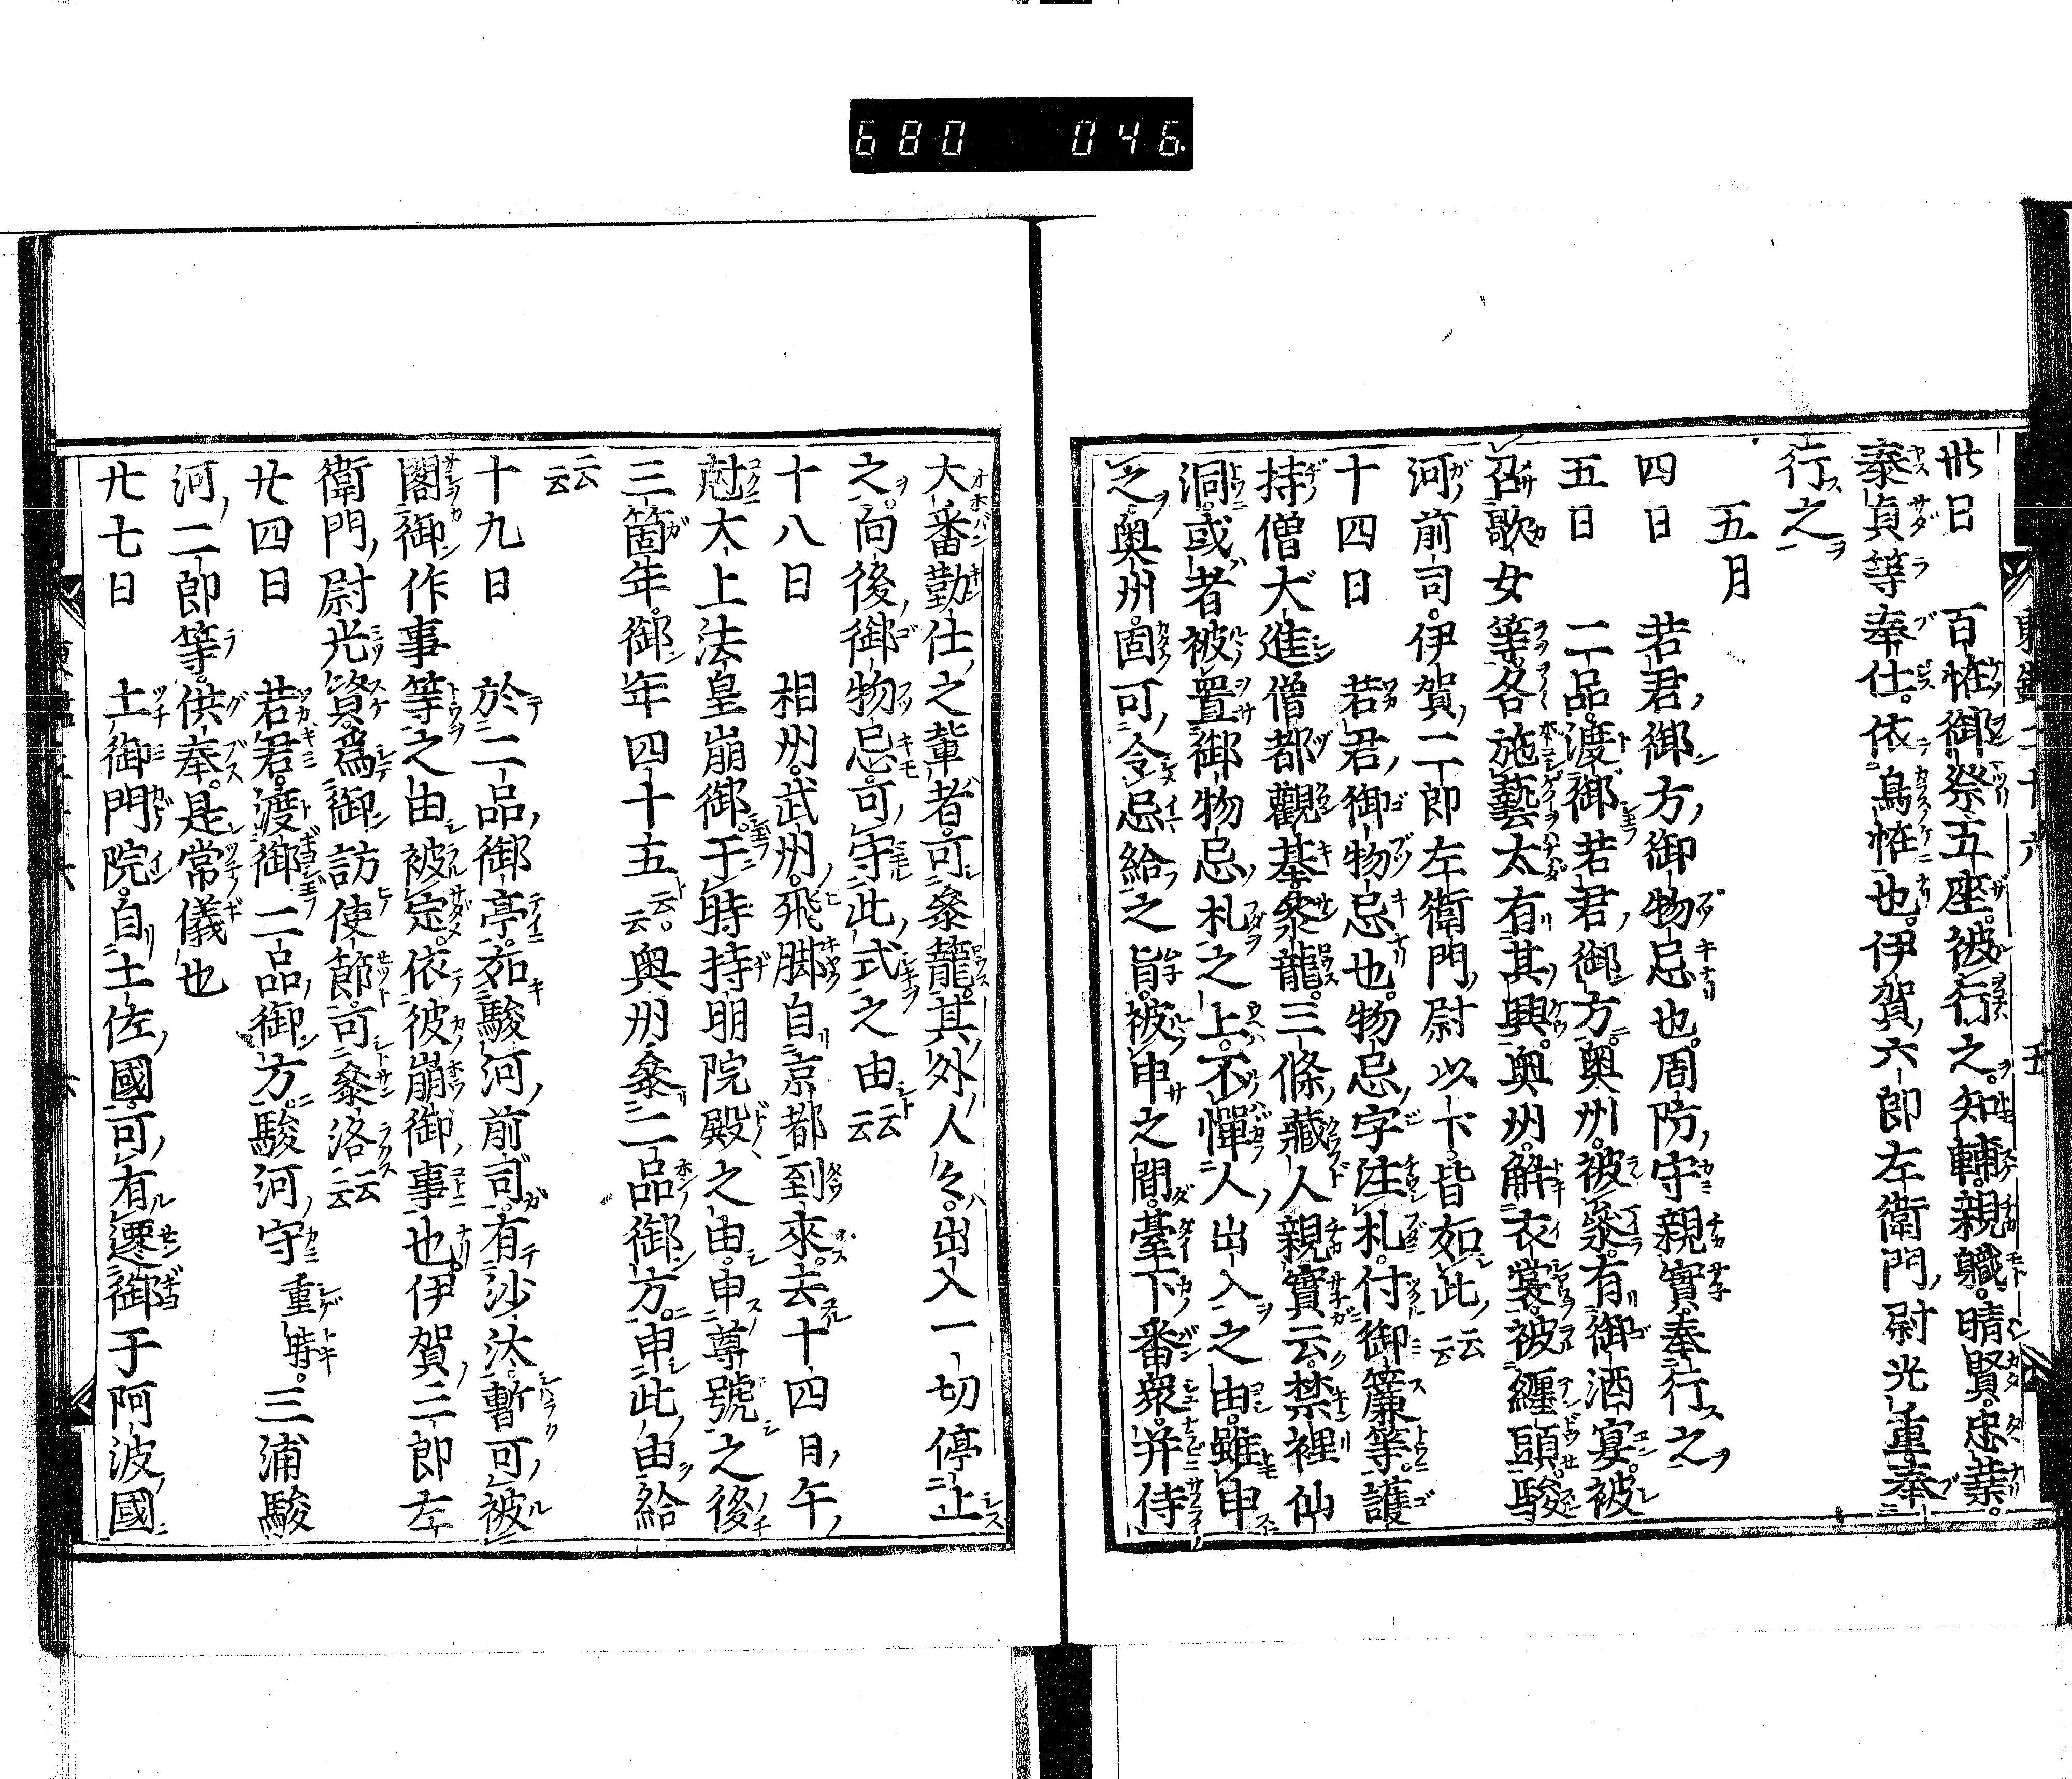 680 046
卅日 百恠御祭五座被行之知輔親職晴賢忠業
泰貞等奉仕依鳥恠也伊賀六郎左衛門尉光重奉
行之
五月
四日 若君御方御物忌也周防守親實奉行之
五日 二品渡御若君御方奥州被参有御酒宴被
召歌女等各施藝太有其興奥州解衣裳被纏頭駿
河前司伊賀二郎左衛門尉以下皆如此云云
十四日 若君御物忌也物忌字注札付御簾等護
持僧大進僧都觀基參籠三條藏人親實云禁裡仙
洞或者被置御物忌札之上不憚人出入之由雖申
之奥州固可令忌給之旨被申之間臺下番衆并侍
大番勤仕之輩者可參籠其外人々出入一切停止
之向後御物忌可守此式之由云云
十八日 相州武州飛脚自京都到來去十四日午
尅太上法皇崩御于時持明院殿之由申尊號之後
三箇年御年四十五云云奥州參二品御方申此由給
云云
十九日 於二品御亭如駿河前司有沙汰暫可被
閣御作事等之由被定依彼崩御事也伊賀三郎左
衛門尉光資爲御訪使節可參洛云云
廿四日 若君渡御二品御方駿河守重時三浦駿
河二郎等供奉是常儀也
廿七日 土御門院自土佐國可有遷御于阿波國